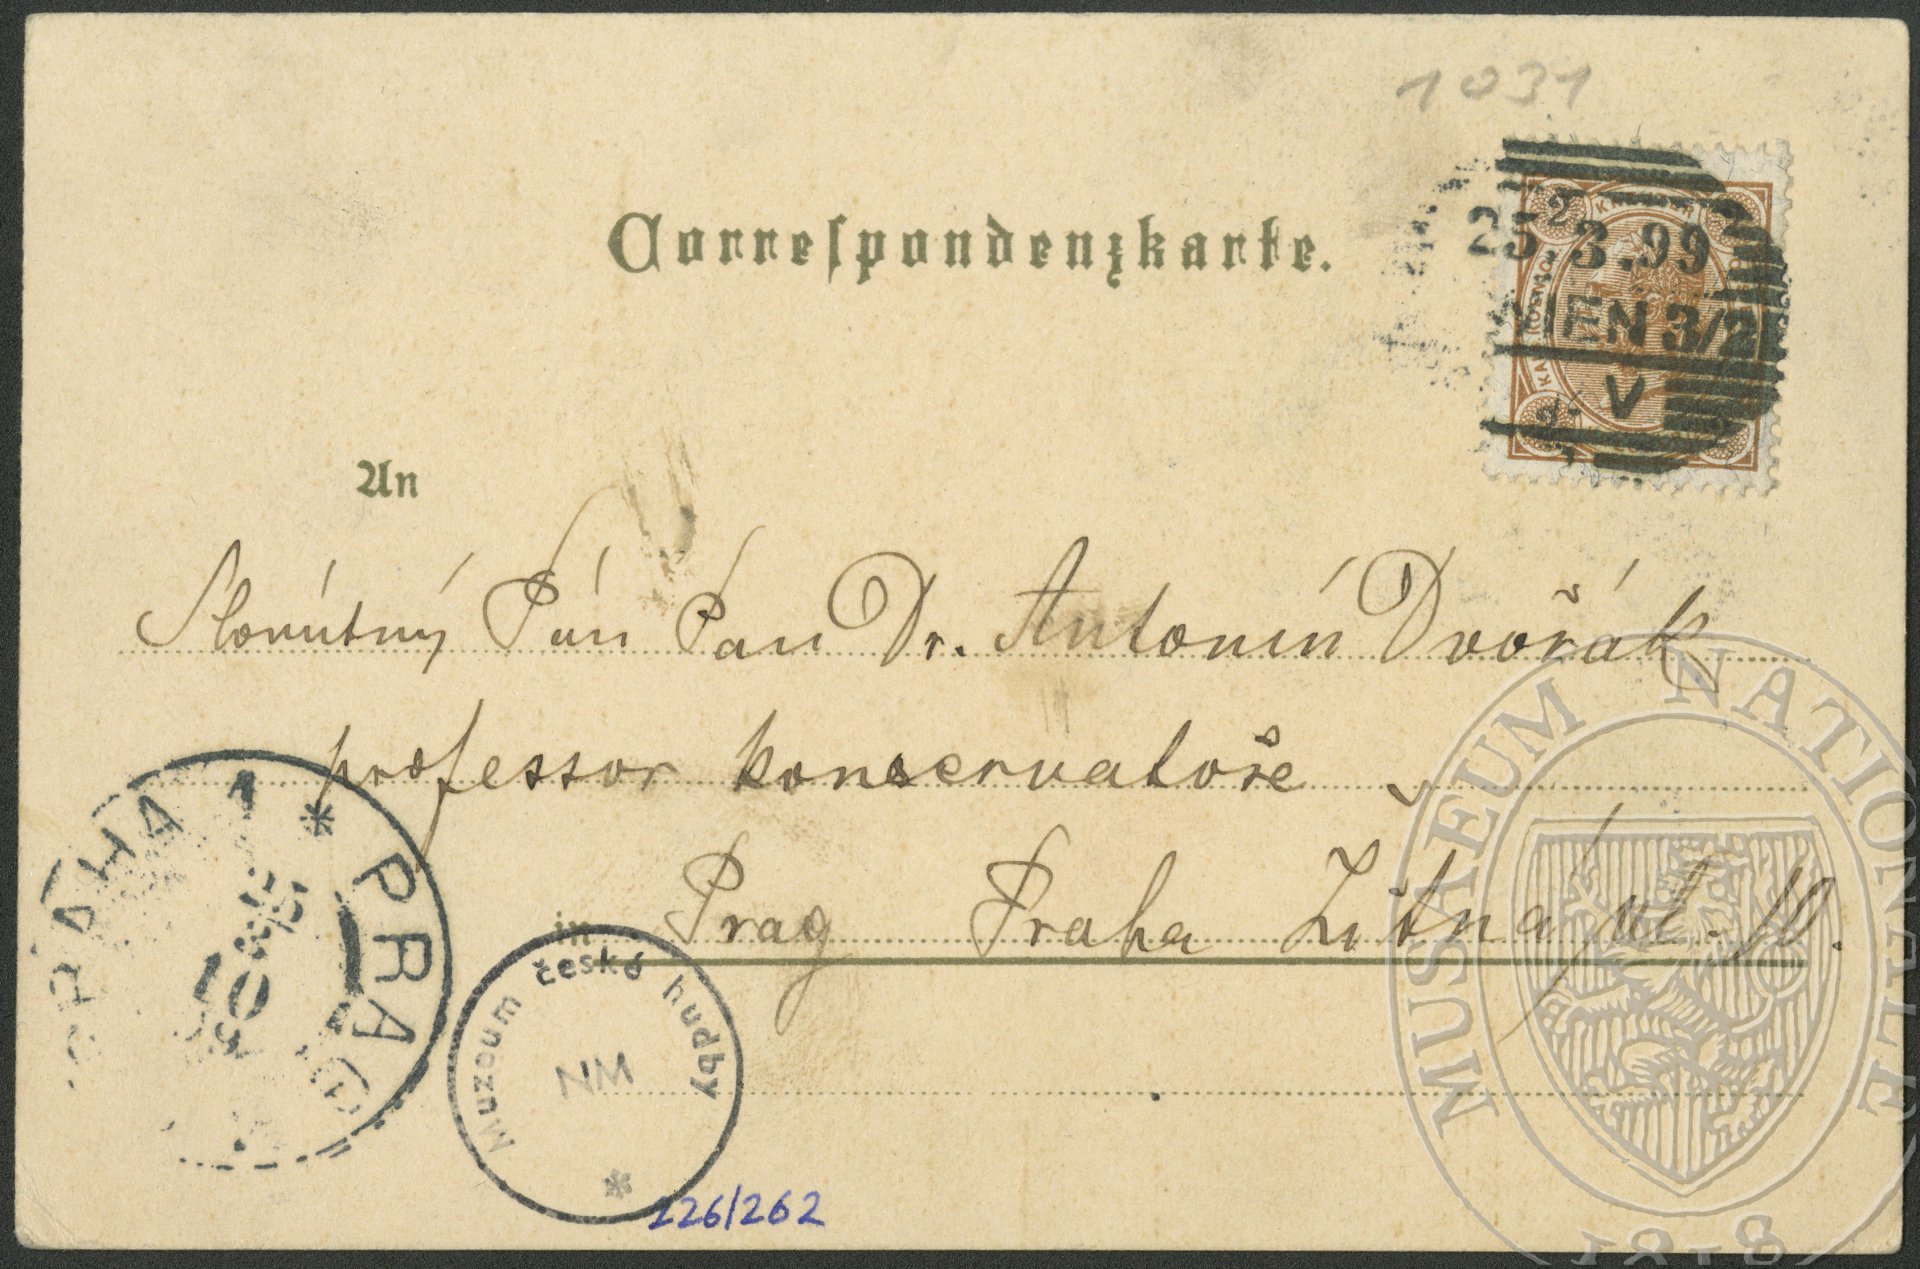 1031
Correspondenzkarte.
25.3.99
WIEN 3/2
V
An
Slovútný Pán Pan Dr. Antonín Dvořák
professor konservatoře v
in Prag Praha Žitná ul. 10.
PRAHA 1 * PRAG
Muzeum české hudby
NM
*
226/262
MUSAEUM NATIONALE
1818